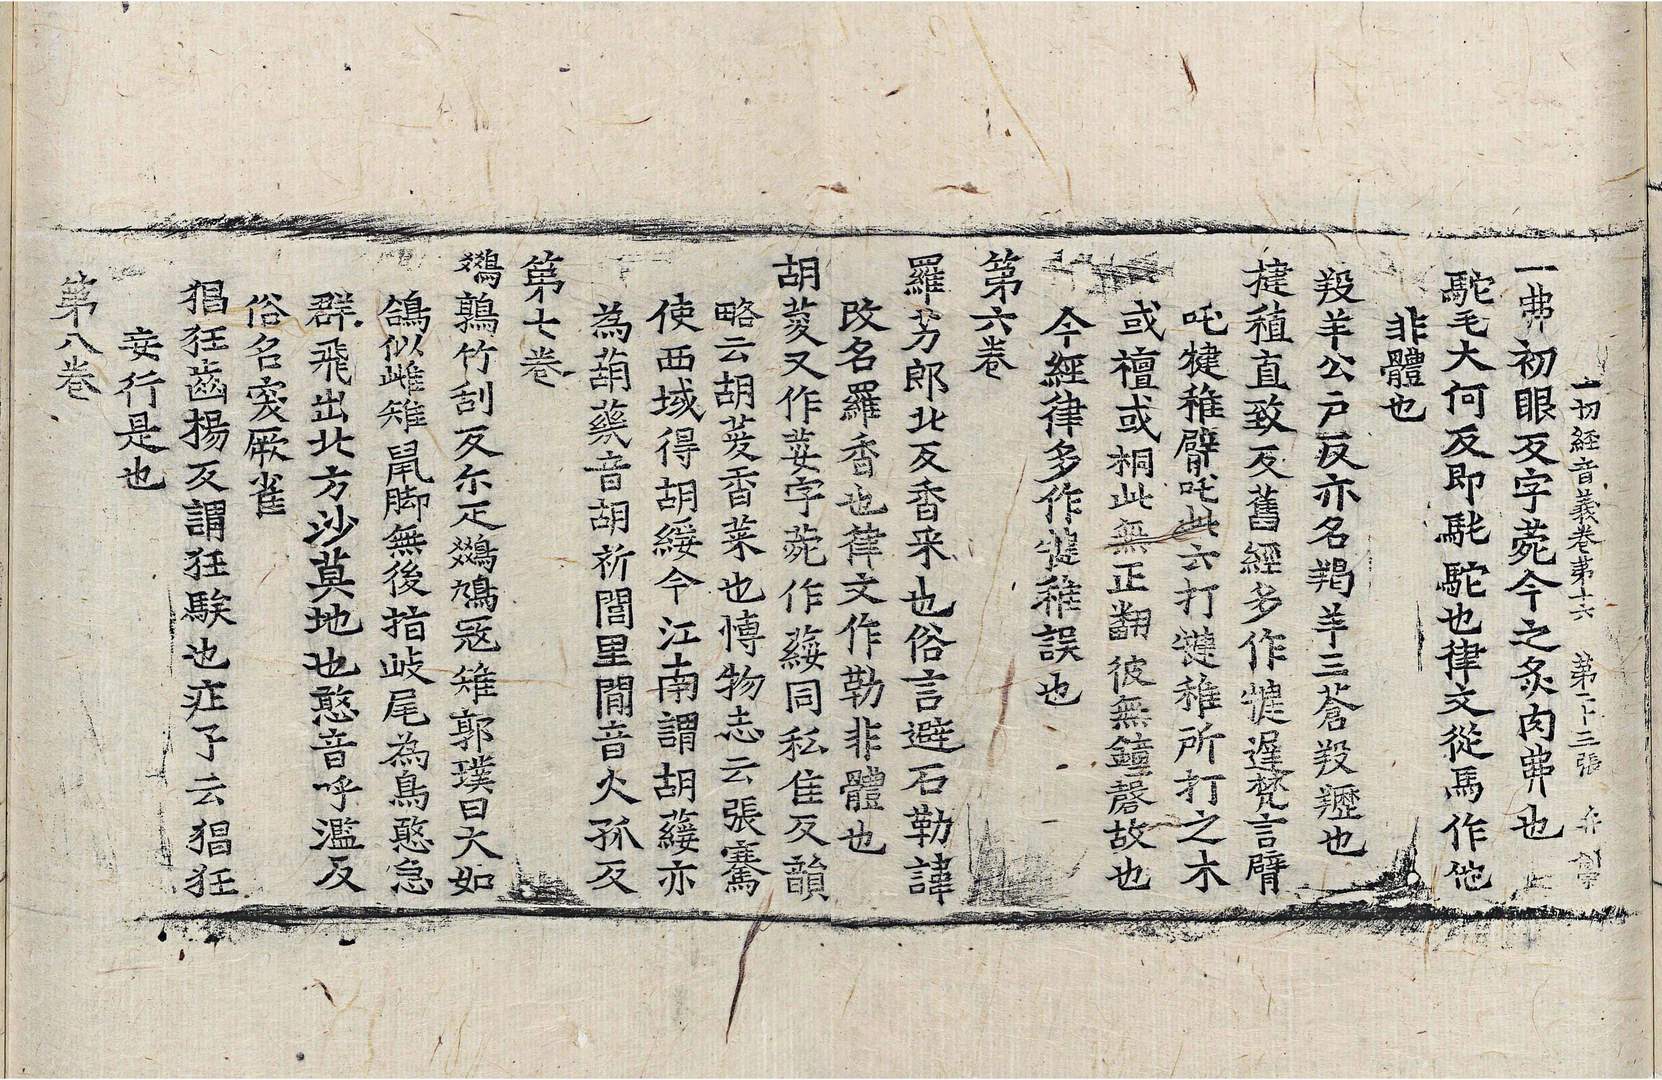 一切經音義卷第十六　第二十三張　亦字
一弗初眼反字菀今之炙肉弗也
駝毛大何反即馲駝也律文從馬作他
非體也
羖羊公戸反亦名羯羊三蒼羖䍽也
揵稙直致反舊經多作揵遅梵言臂
吒犍稚臂吒此云打揵稚所打之木
或檀或桐此無正翻彼無鐘磬故也
今經律多作揵稚誤也
第六卷
羅勒郎北反香菜也俗言避石勒諱
改名羅香也律文作勒非體也
胡荾又作荽字菀作䕑同私隹反韻
略云胡荾香菜也博物志云張騫
使西域得胡綏今江南謂胡䕑亦
為葫蒵音胡祈閭里間音火孤反
第七卷
鵽鶉竹刮反尒疋鵽鳩冦雉郭璞曰大如
鴿似雌雉鼠脚無後指岐尾為鳥憨急
群飛出北方沙莫地也憨音呼濫反
俗名突厥雀
猖狂齒揚反謂狂騃也疰子云猖狂
妄行是也
第八卷